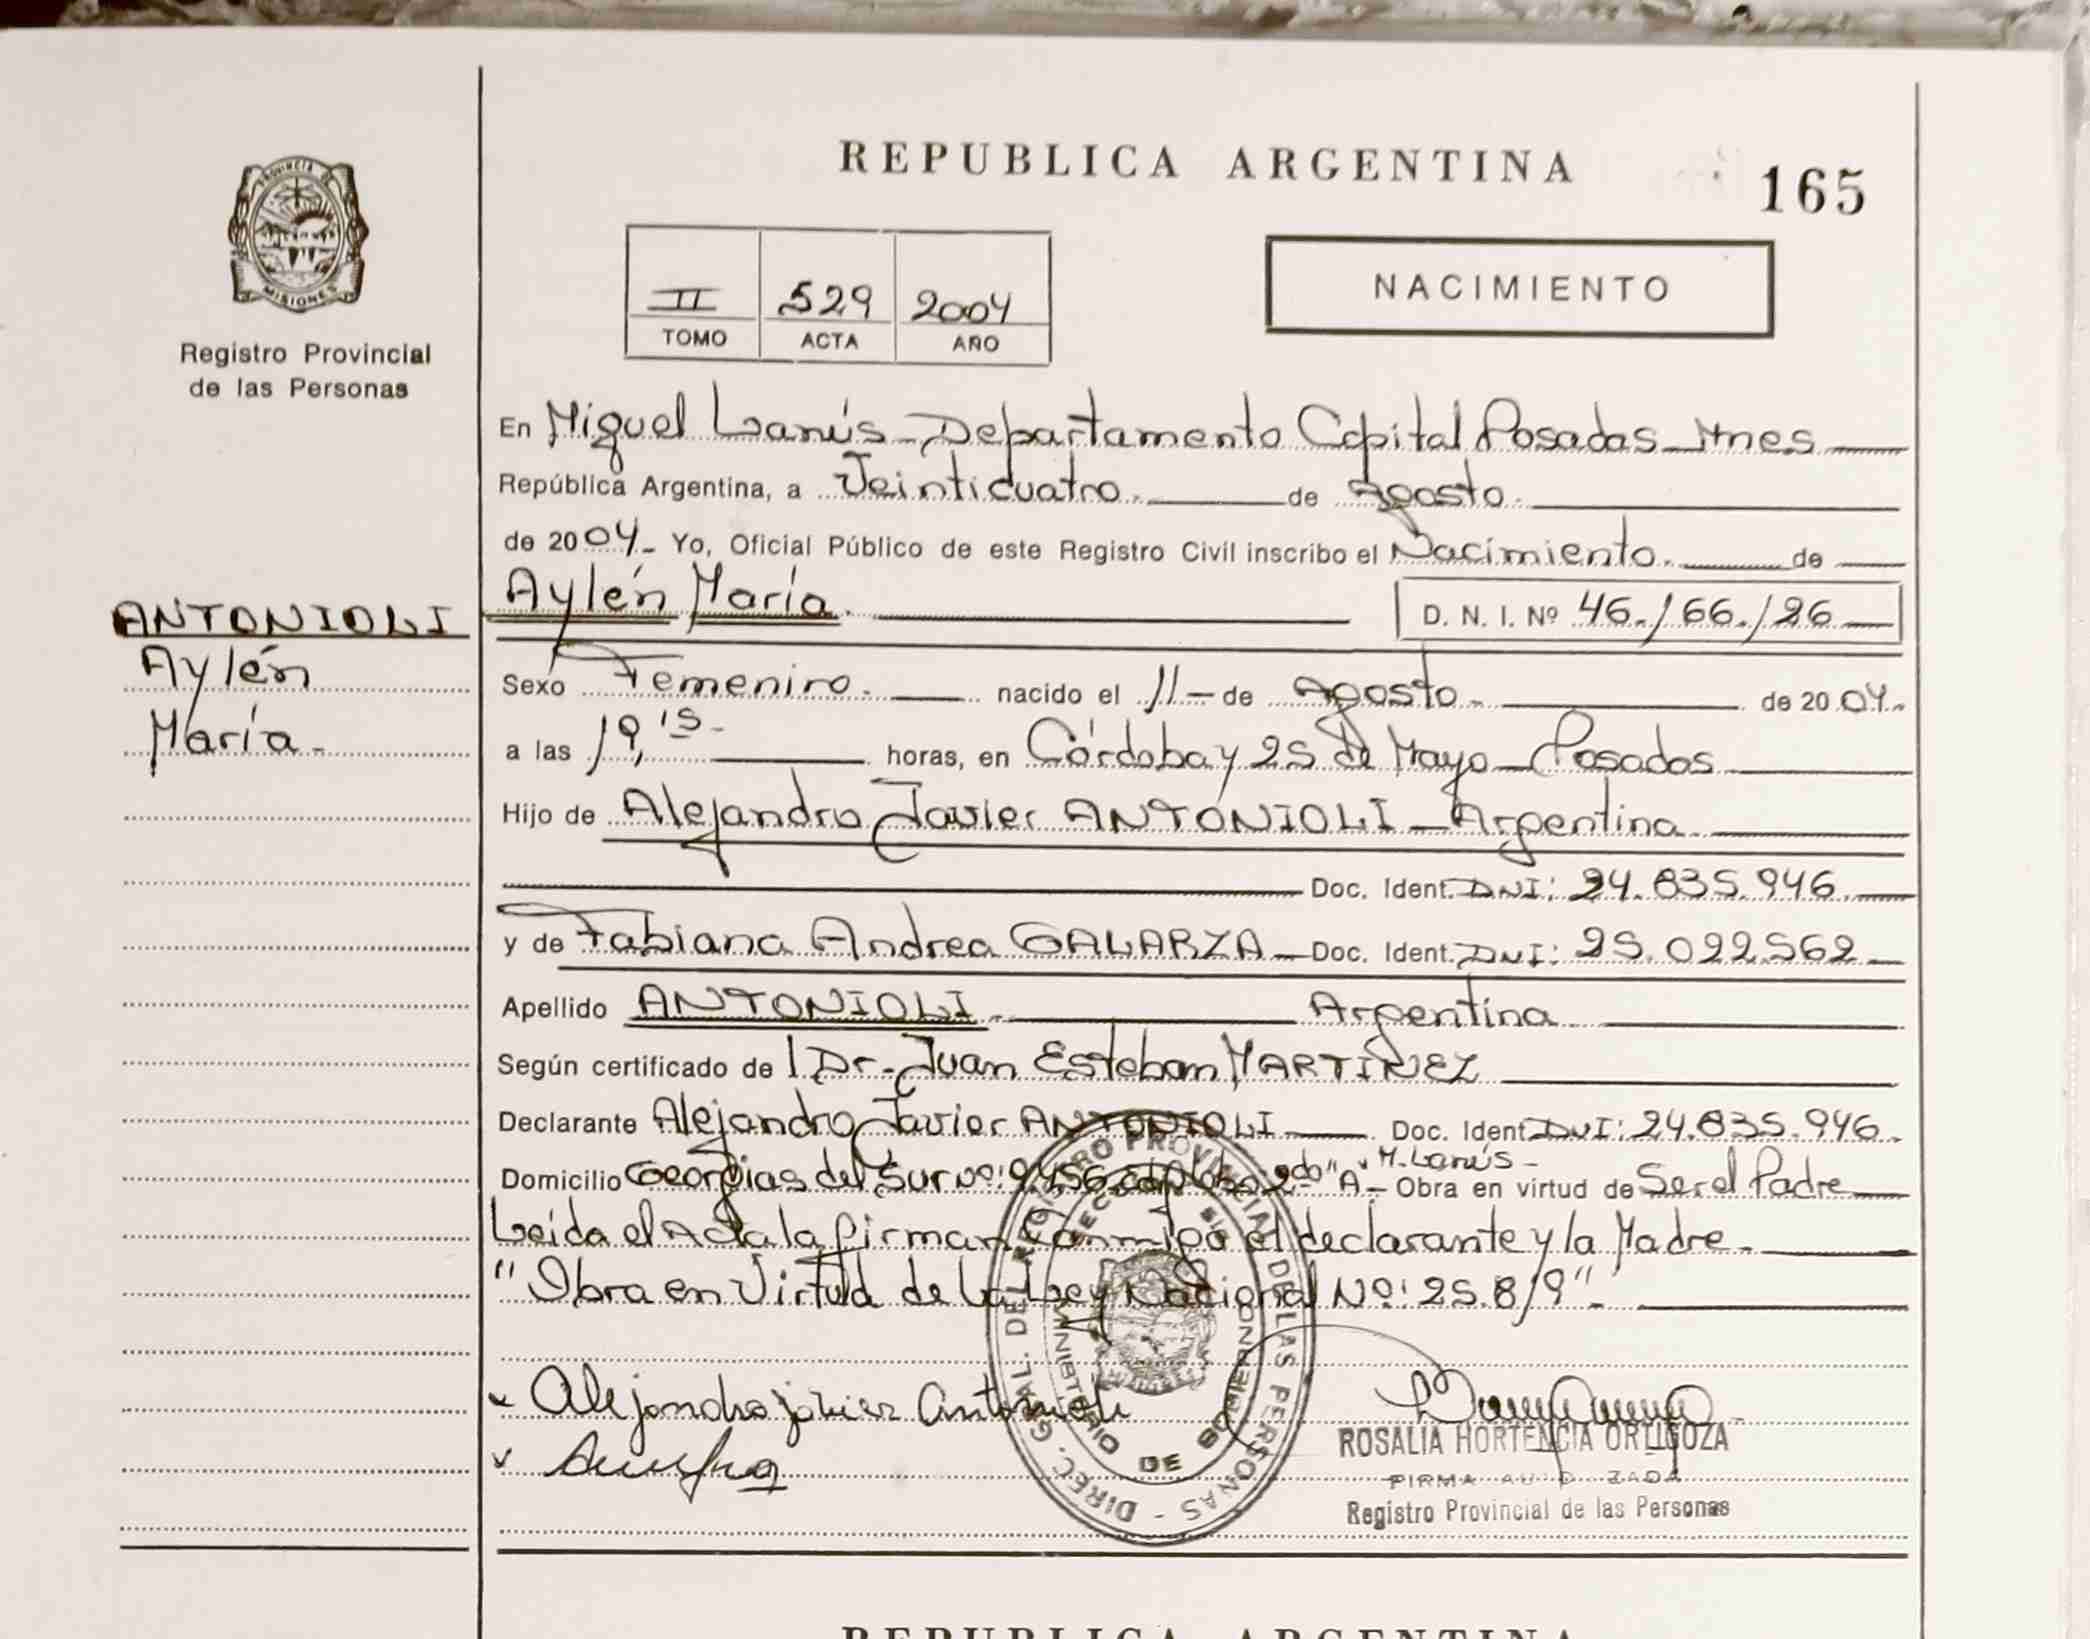 REPUBLICA ARGENTINA
165
PROVINCIA DE
MISIONES
Registro Provincial
de las Personas
II 529 2004
TOMO ACTA AÑO
NACIMIENTO
En Miguel Lanús - Departamento Capital Posadas - Mnes
República Argentina, a Veinticuatro. de Agosto.
de 2004- Yo, Oficial Público de este Registro Civil inscribo el Nacimiento. de
Aylén María.
D. N. I. Nº 46.166.126
ANTONIOLI
Aylén
María.
Sexo Femenino. nacido el 11- de Agosto. de 2004.
a las 19,15- horas, en Córdoba y 25 de Mayo - Posadas
Hijo de Alejandro Javier ANTONIOLI - Argentina
Doc. Ident. DNI: 24.835.946.
y de Fabiana Andrea GALARZA - Doc. Ident. DNI: 25.022.562
Apellido ANTONIOLI. Argentina
Según certificado de l Dr. Juan Esteban MARTINEZ
Declarante Alejandro Javier ANTONIOLI Doc. Ident DNI: 24.835.946.
Domicilio Georgias del Sur Nº: 2do "A" M. Lanús - Obra en virtud de Ser el Padre
Leida el Acta la firman Conmigo el declarante y la Madre.
"Obra en Virtud de la Ley Nacional Nº: 25.819".
Alejandro Javier Antonioli
ROSALIA HORTENCIA ORTIGOZA
FIRMA AUTORIZADA
Registro Provincial de las Personas
DIREC. GRAL. DEL REGISTRO PROVINCIAL DE LAS PERSONAS -
MINISTERIO DE GOBIERNO
REPUBLICA ARGENTINA